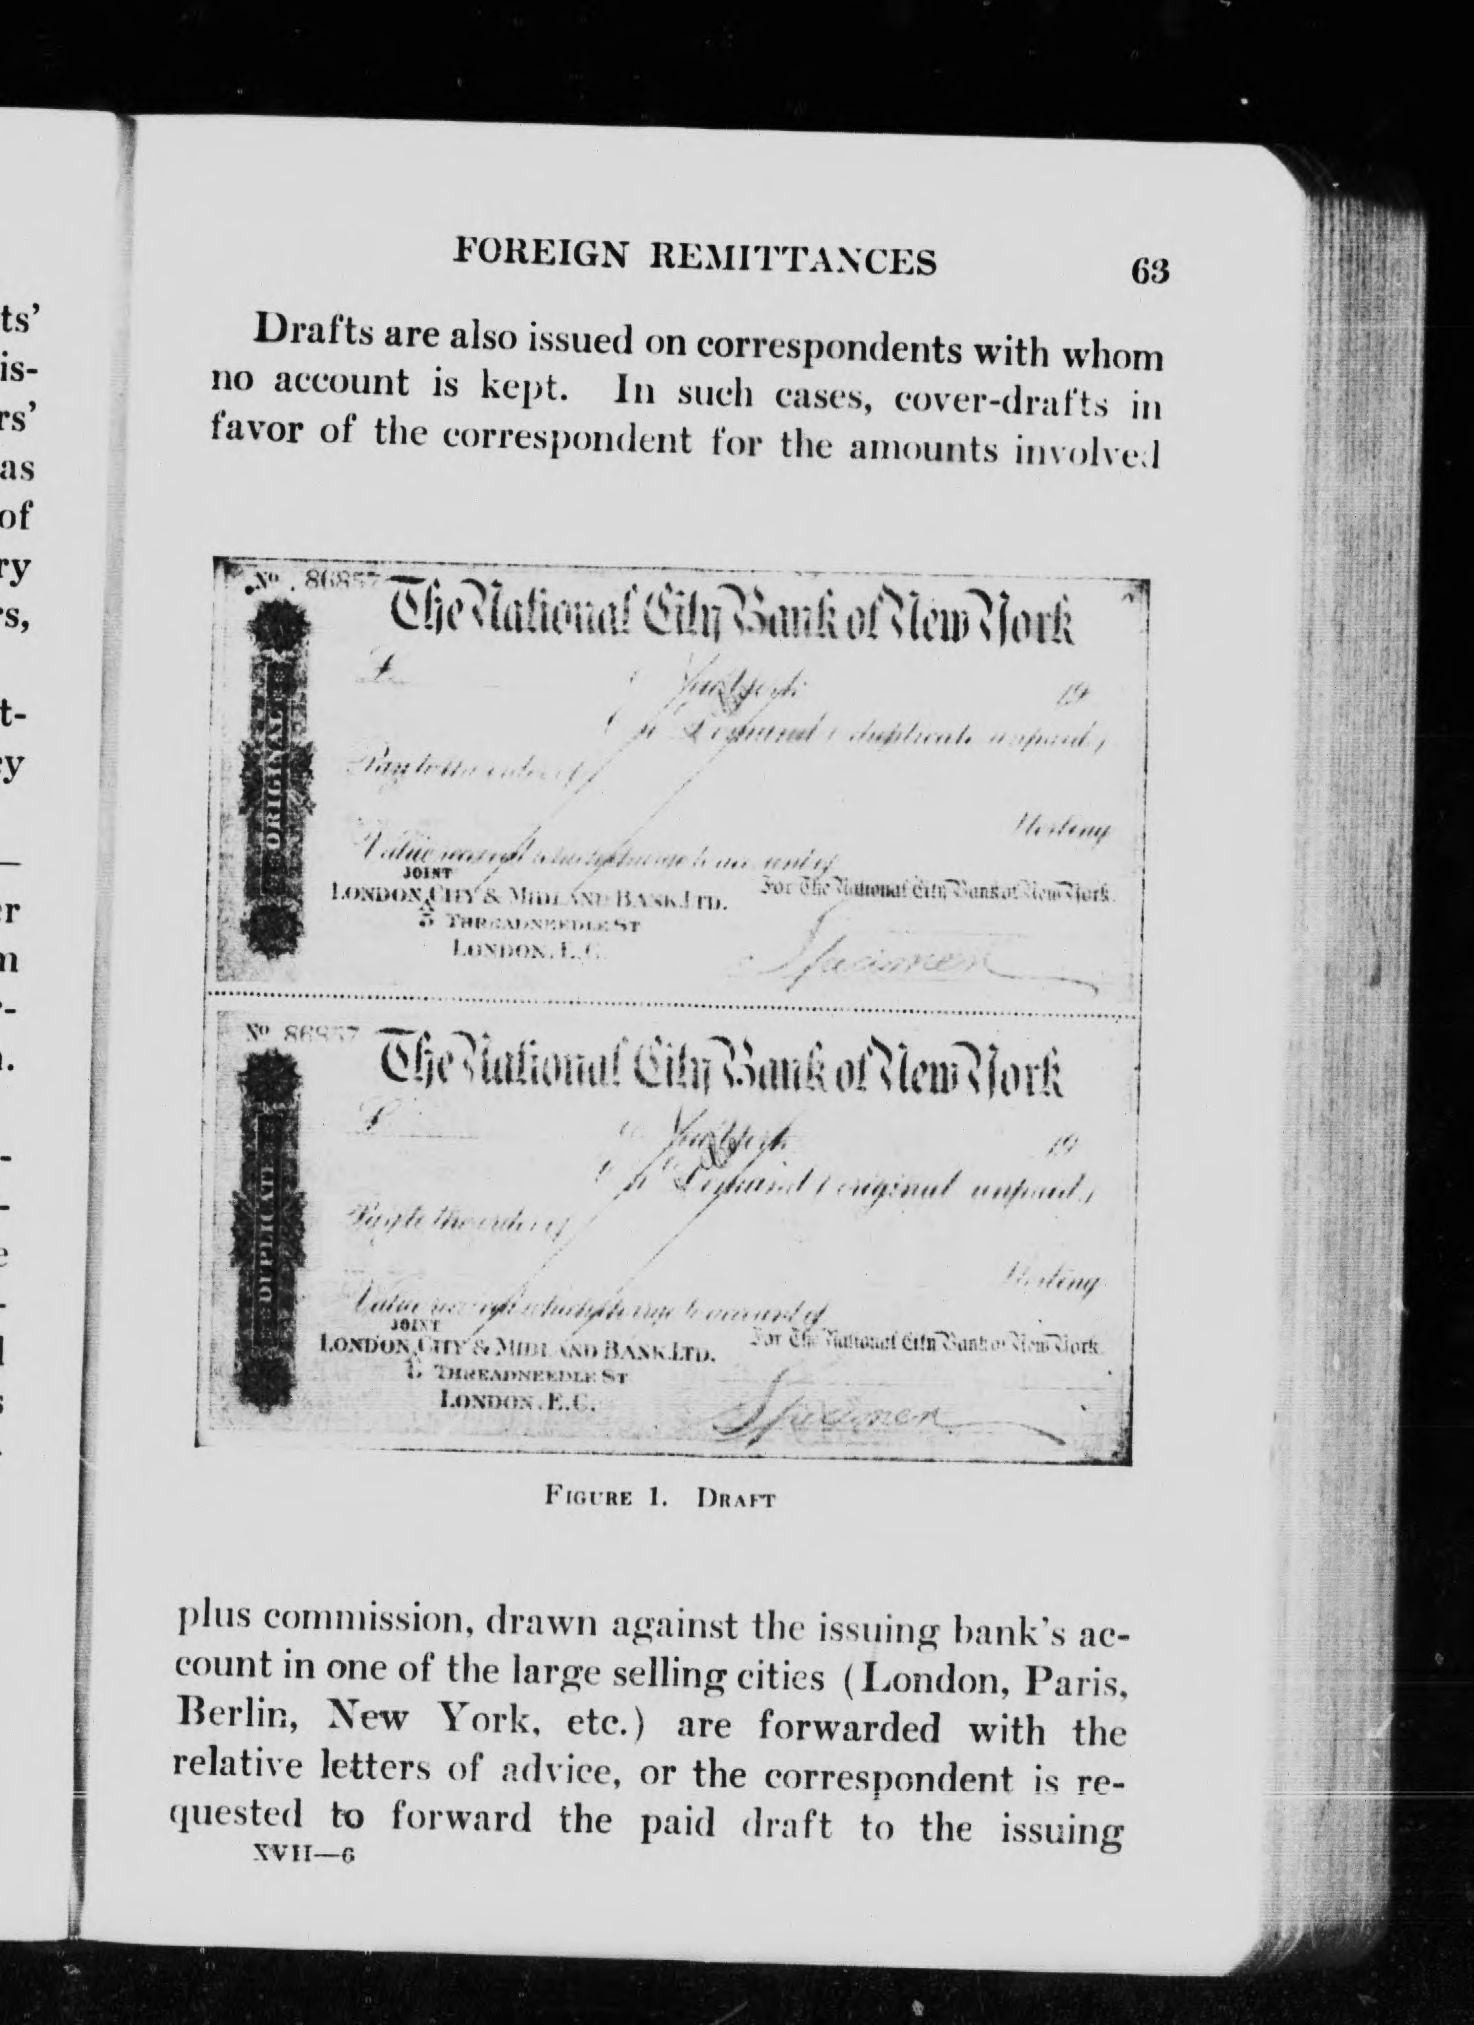 ts’
is-
rs’
as
of
ry
rs,
t-
cy
er
m
FOREIGN REMITTANCES 63
Drafts are also issued on correspondents with whom
no account is kept. In such cases, cover-drafts in
favor of the correspondent for the amounts involved
No. 86857
The National City Bank of New York
ORIGINAL
£
New York 19
On Demand (duplicate unpaid)
Pay to the order of
Sterling
Value received which charge to account of
JOINT
LONDON CITY & MIDLAND BANK LTD.
For The National City Bank of New York.
5 THREADNEEDLE ST
LONDON, E.C.
Specimen
No 86857
The National City Bank of New York
DUPLICATE
£
New York 19
On Demand (original unpaid)
Pay to the order of
Sterling
Value received which charge to account of
JOINT
LONDON CITY & MIDLAND BANK LTD.
For The National City Bank of New York.
5 THREADNEEDLE ST
LONDON, E.C.
Specimen
FIGURE 1. DRAFT
plus commission, drawn against the issuing bank’s ac-
count in one of the large selling cities (London, Paris,
Berlin, New York, etc.) are forwarded with the
relative letters of advice, or the correspondent is re-
quested to forward the paid draft to the issuing
XVII—6